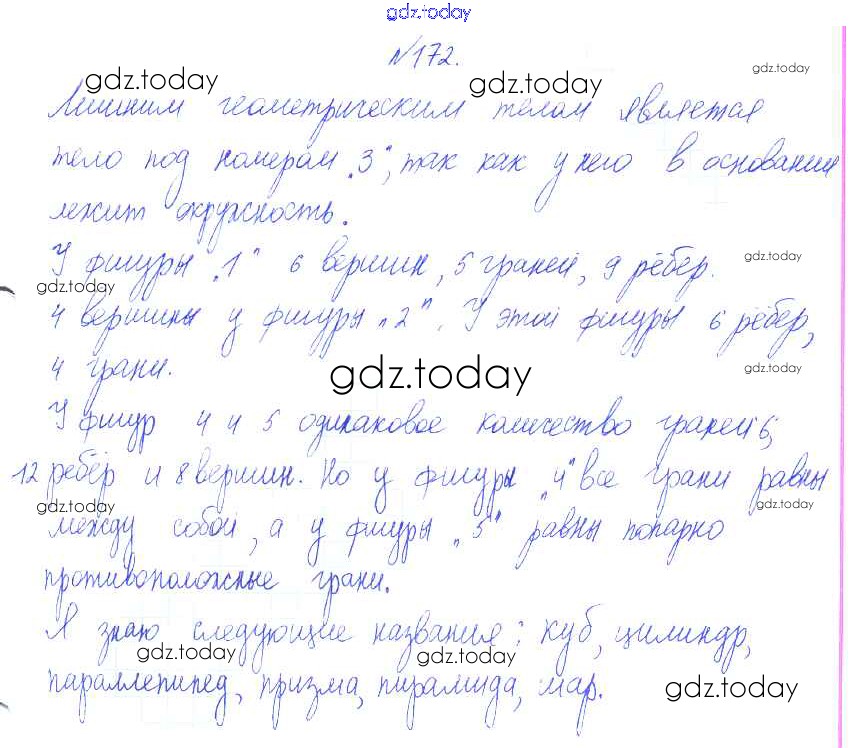 gdz.today
№172.
gdz.today gdz.today gdz.today
Лишним геометрическим телом является
тело под номером „3", так как у него в основании
лежит окружность.
У фигуры „1" 6 вершин, 5 граней, 9 рёбер.
gdz.today gdz.today
4 вершины у фигуры „2". У этой фигуры 6 рёбер,
4 грани.
gdz.today gdz.today
У фигур 4 и 5 одинаковое количество граней 6,
12 рёбер и 8 вершин. Но у фигуры „4" все грани равны
gdz.today gdz.today
между собой, а у фигуры „5" равны попарно
противоположные грани.
Я знаю следующие названия: куб, цилиндр,
gdz.today gdz.today
параллепипед, призма, пирамида, шар.
gdz.today